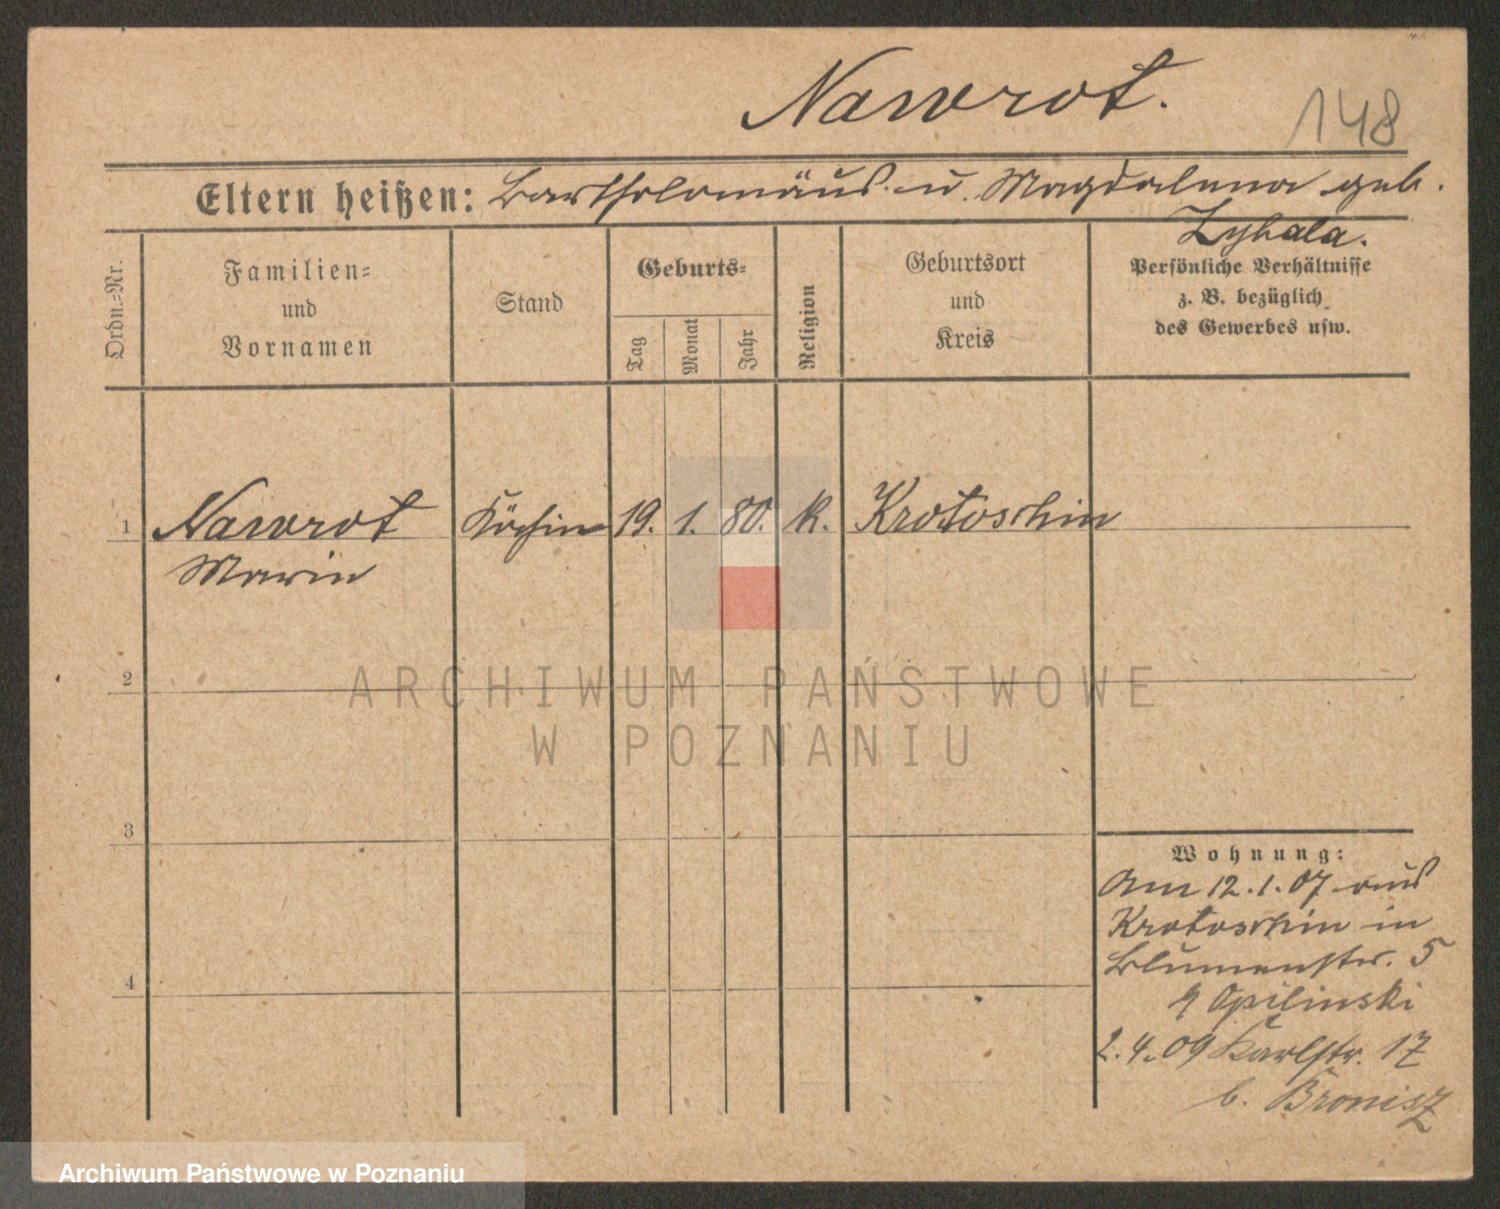 Nawrot.
148
Eltern heißen: Bartholomäus u. Magdalena geb.
Zybala.
Ordn.-Nr.
Familien-
und
Vornamen
Stand
Geburts-
Tag
Monat
Jahr
Religion
Geburtsort
und
Kreis
Persönliche Verhältnisse
z. B. bezüglich
des Gewerbes usw.
1 Nawrot Köchin 19. 1. 80. K. Krotoschin
Marie
2
ARCHIWUM PAŃSTWOWE
W POZNANIU
3
Wohnung:
Am 12.1.07 aus
Krotoschin in
Blumenstr. 5
Opilinski
4
2.4.09 Karlstr. 17
b. Bronisz
Archiwum Państwowe w Poznaniu